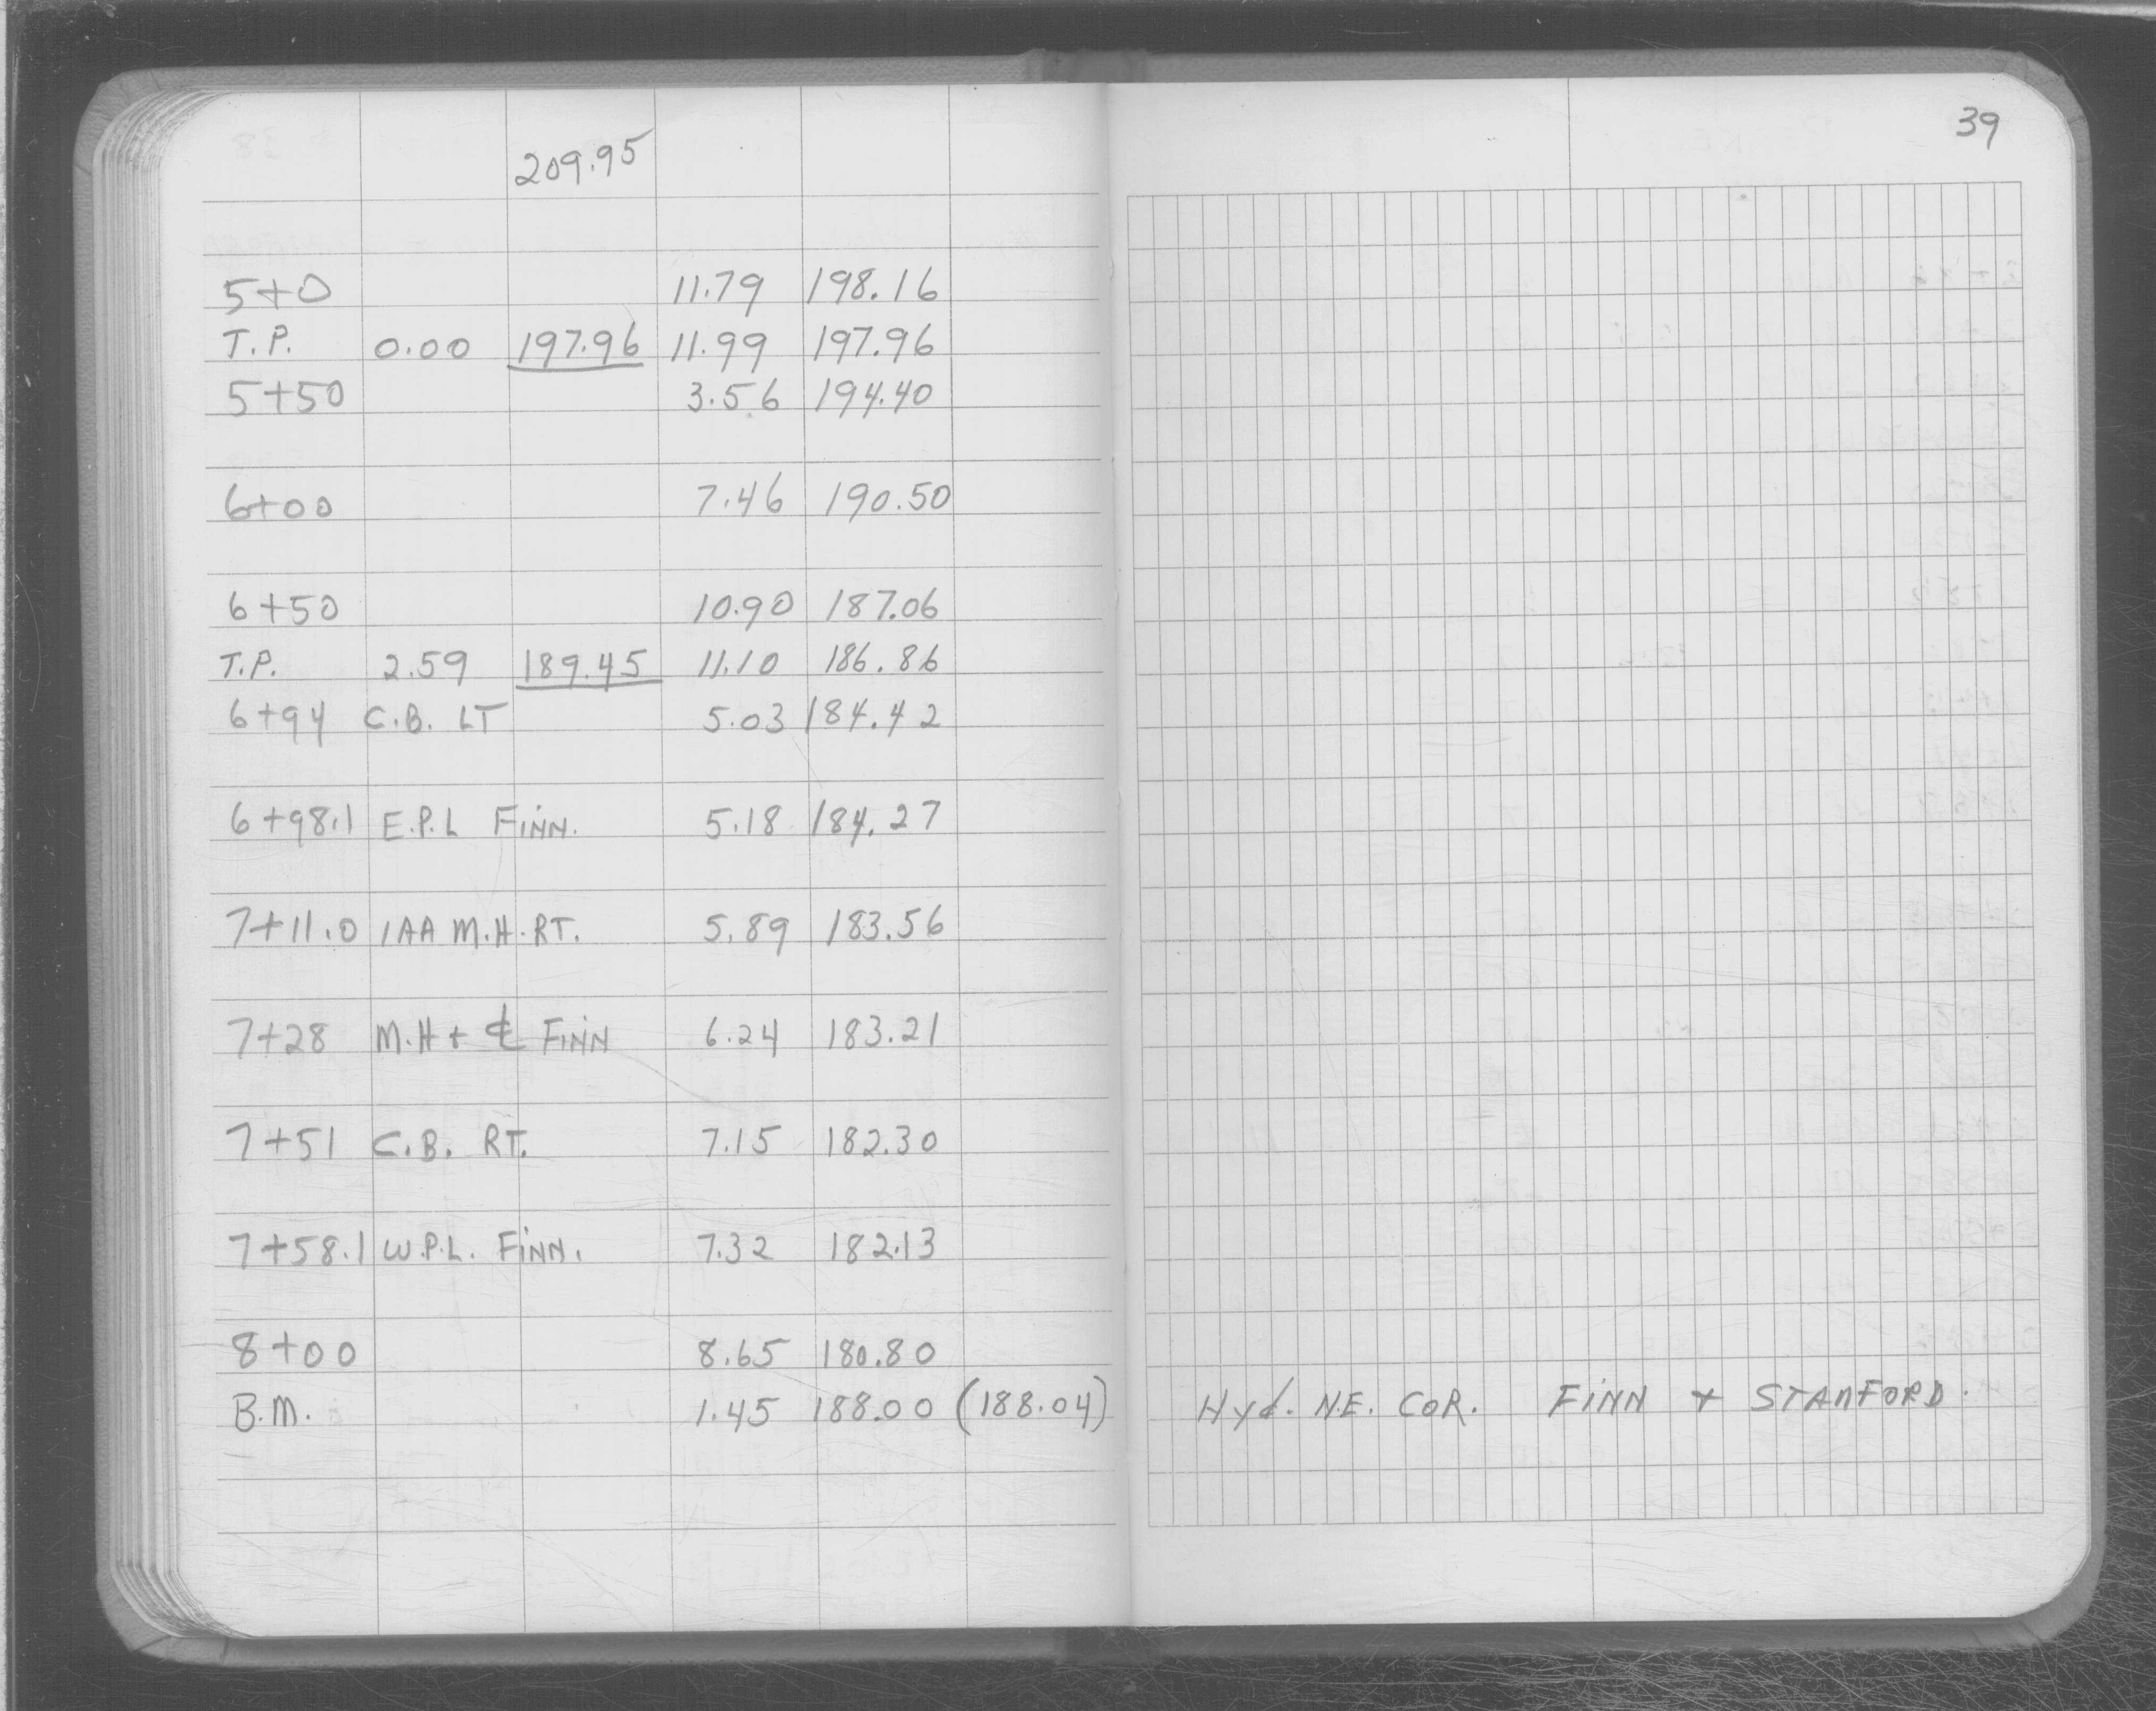 39
209.95
5+0 11.79 198.16
T.P. 0.00 197.96 11.99 197.96
5+50 3.56 194.40
6+00 7.46 190.50
6+50 10.90 187.06
T.P. 2.59 189.45 11.10 186.86
6+94 C.B. LT 5.03 184.42
6+98.1 E.P.L FINN. 5.18 184.27
7+11.0 1AA M.H. RT. 5.89 183.56
7+28 M.H + ℄ FINN 6.24 183.21
7+51 C.B. RT. 7.15 182.30
7+58.1 W.P.L. FINN. 7.32 182.13
8+00 8.65 180.80
B.M. 1.45 188.00 (188.04) Hyd. N.E. COR. FINN + STANFORD.